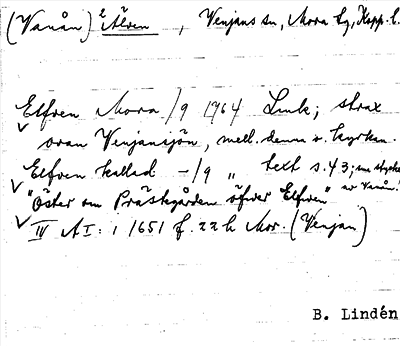 (Vanån) 2 Älven, Venjans sn, Mora tg, Kopp. l.
Elfven Mora /9 1764 Link; strax
ovan Venjansjön, mell. denna o. kyrkan.
Elfven kallad -/9 " text s. 43; om stycke
av Vanån.
"Öster om Prästegården öfver Elfven"
IV A I: 1 1651 f. 22 h Mor. (Venjan)
B. Lindén